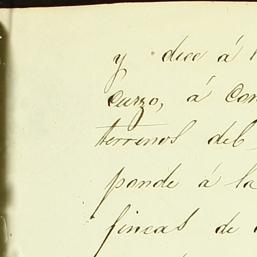 y dice á
curzo, á con
terrenos del
ponde á la
fincas de